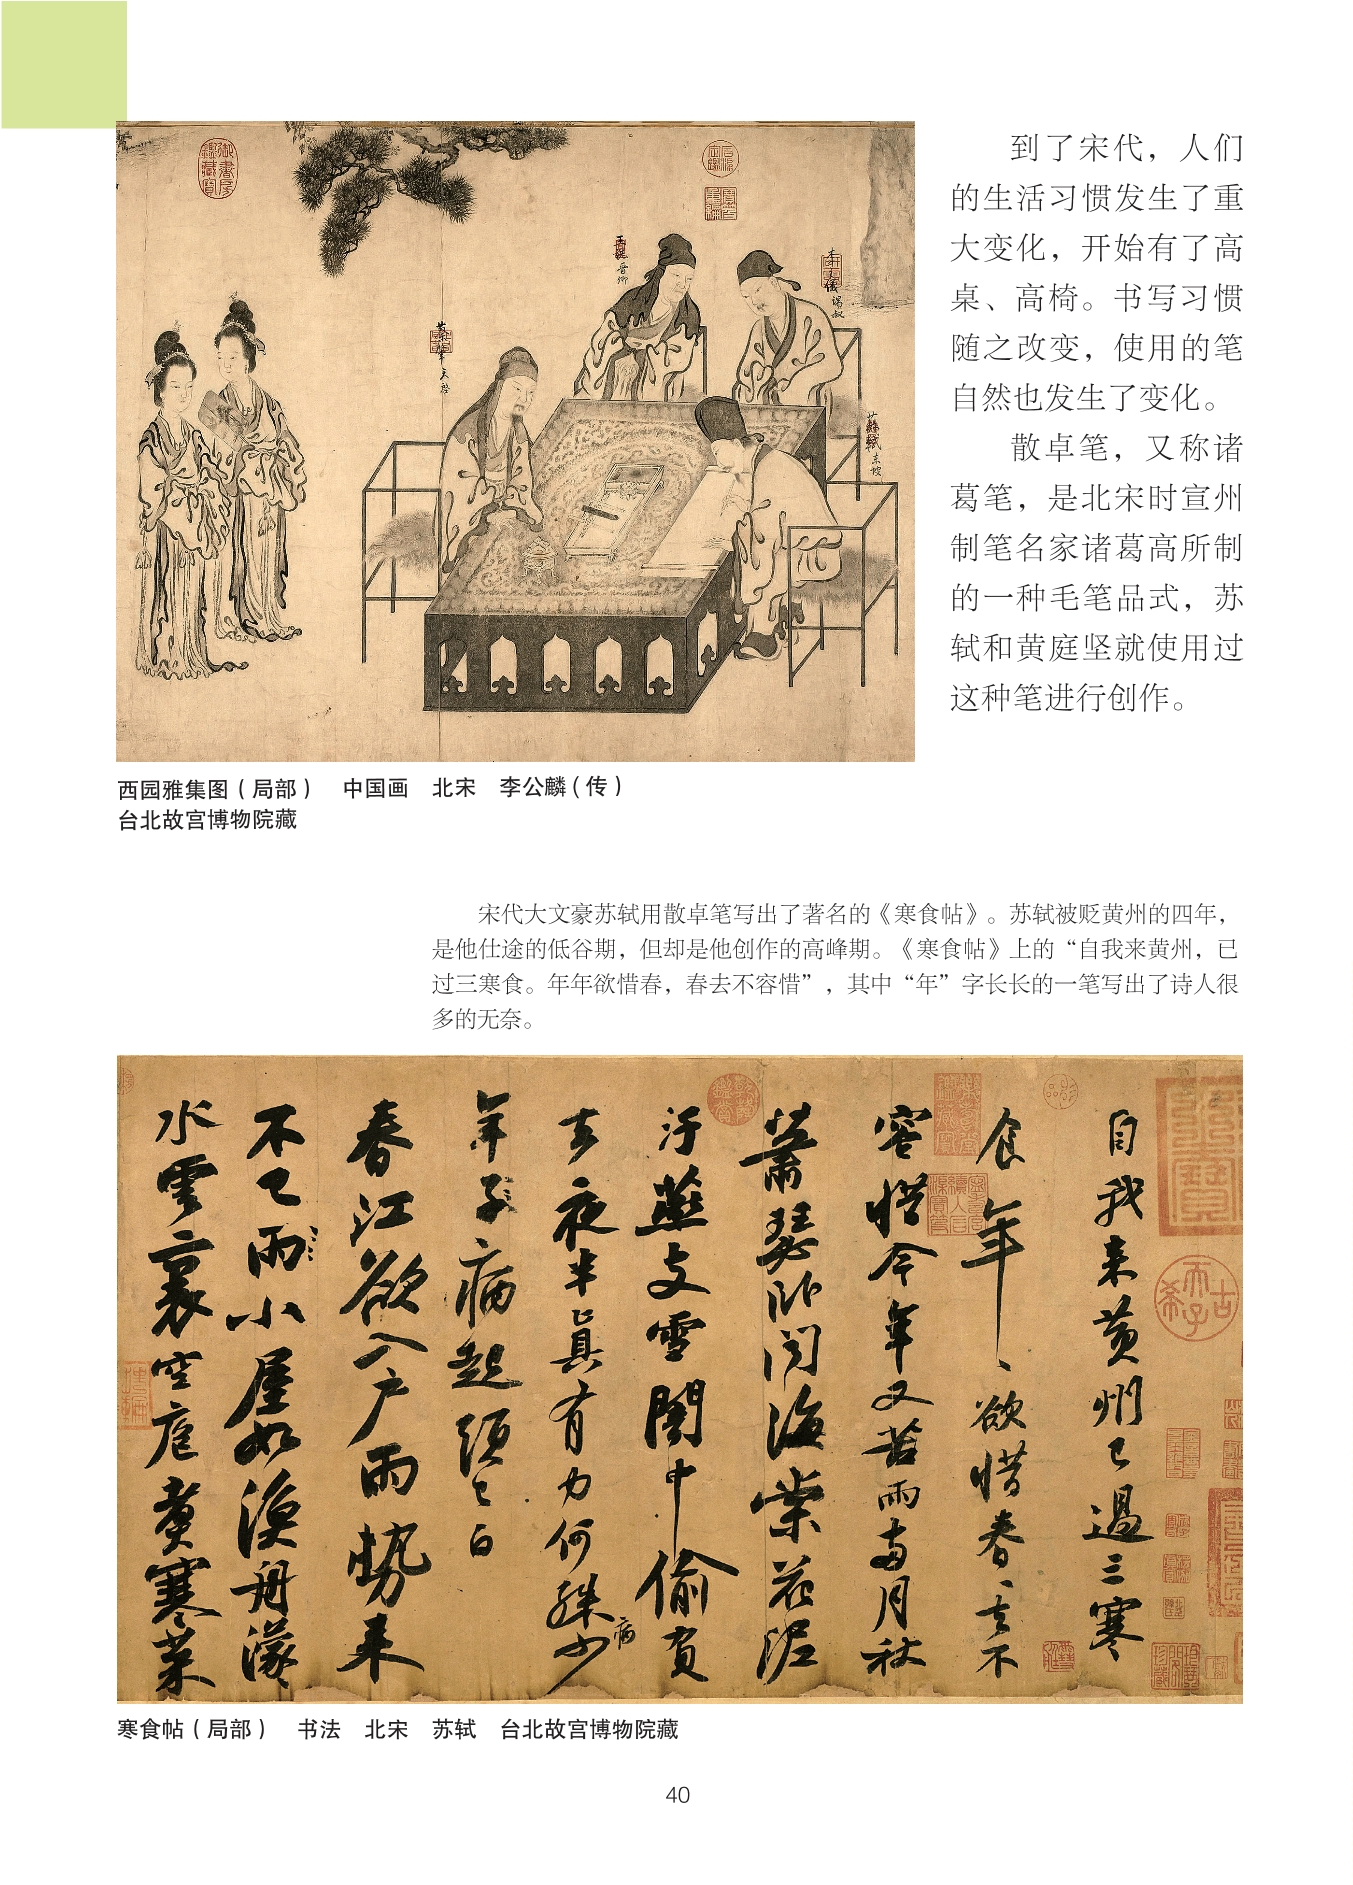 到了宋代，人们
的生活习惯发生了重
大变化，开始有了高
桌、高椅。书写习惯
随之改变，使用的笔
自然也发生了变化。
散卓笔，又称诸
葛笔，是北宋时宣州
制笔名家诸葛高所制
的一种毛笔品式，苏
轼和黄庭坚就使用过
这种笔进行创作。
西园雅集图（局部） 中国画 北宋 李公麟（传）
台北故宫博物院藏
宋代大文豪苏轼用散卓笔写出了著名的《寒食帖》。苏轼被贬黄州的四年，
是他仕途的低谷期，但却是他创作的高峰期。《寒食帖》上的“自我来黄州，已
过三寒食。年年欲惜春，春去不容惜”，其中“年”字长长的一笔写出了诗人很
多的无奈。
自我来黄州已過三寒
食年、欲惜春、去不
容惜今年又苦雨兩月秋
蕭瑟卧闻海棠花泥
汙燕支雪闇中偷負
去夜半真有力何殊少
年子病起須已白
春江欲入户雨勢来
不已雨小屋如漁舟濛
水雲裏空庖煮寒菜
寒食帖（局部） 书法 北宋 苏轼 台北故宫博物院藏
40